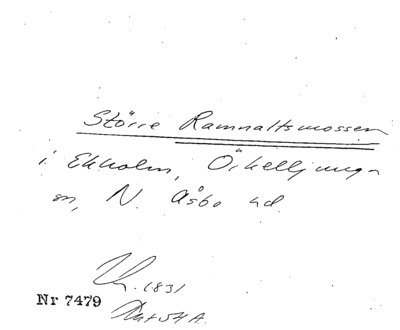 Större Ramnaltsmossen
i Ekholm, Örkelljunga
sn, N. Åsbo hd.
1831
Nr 7479